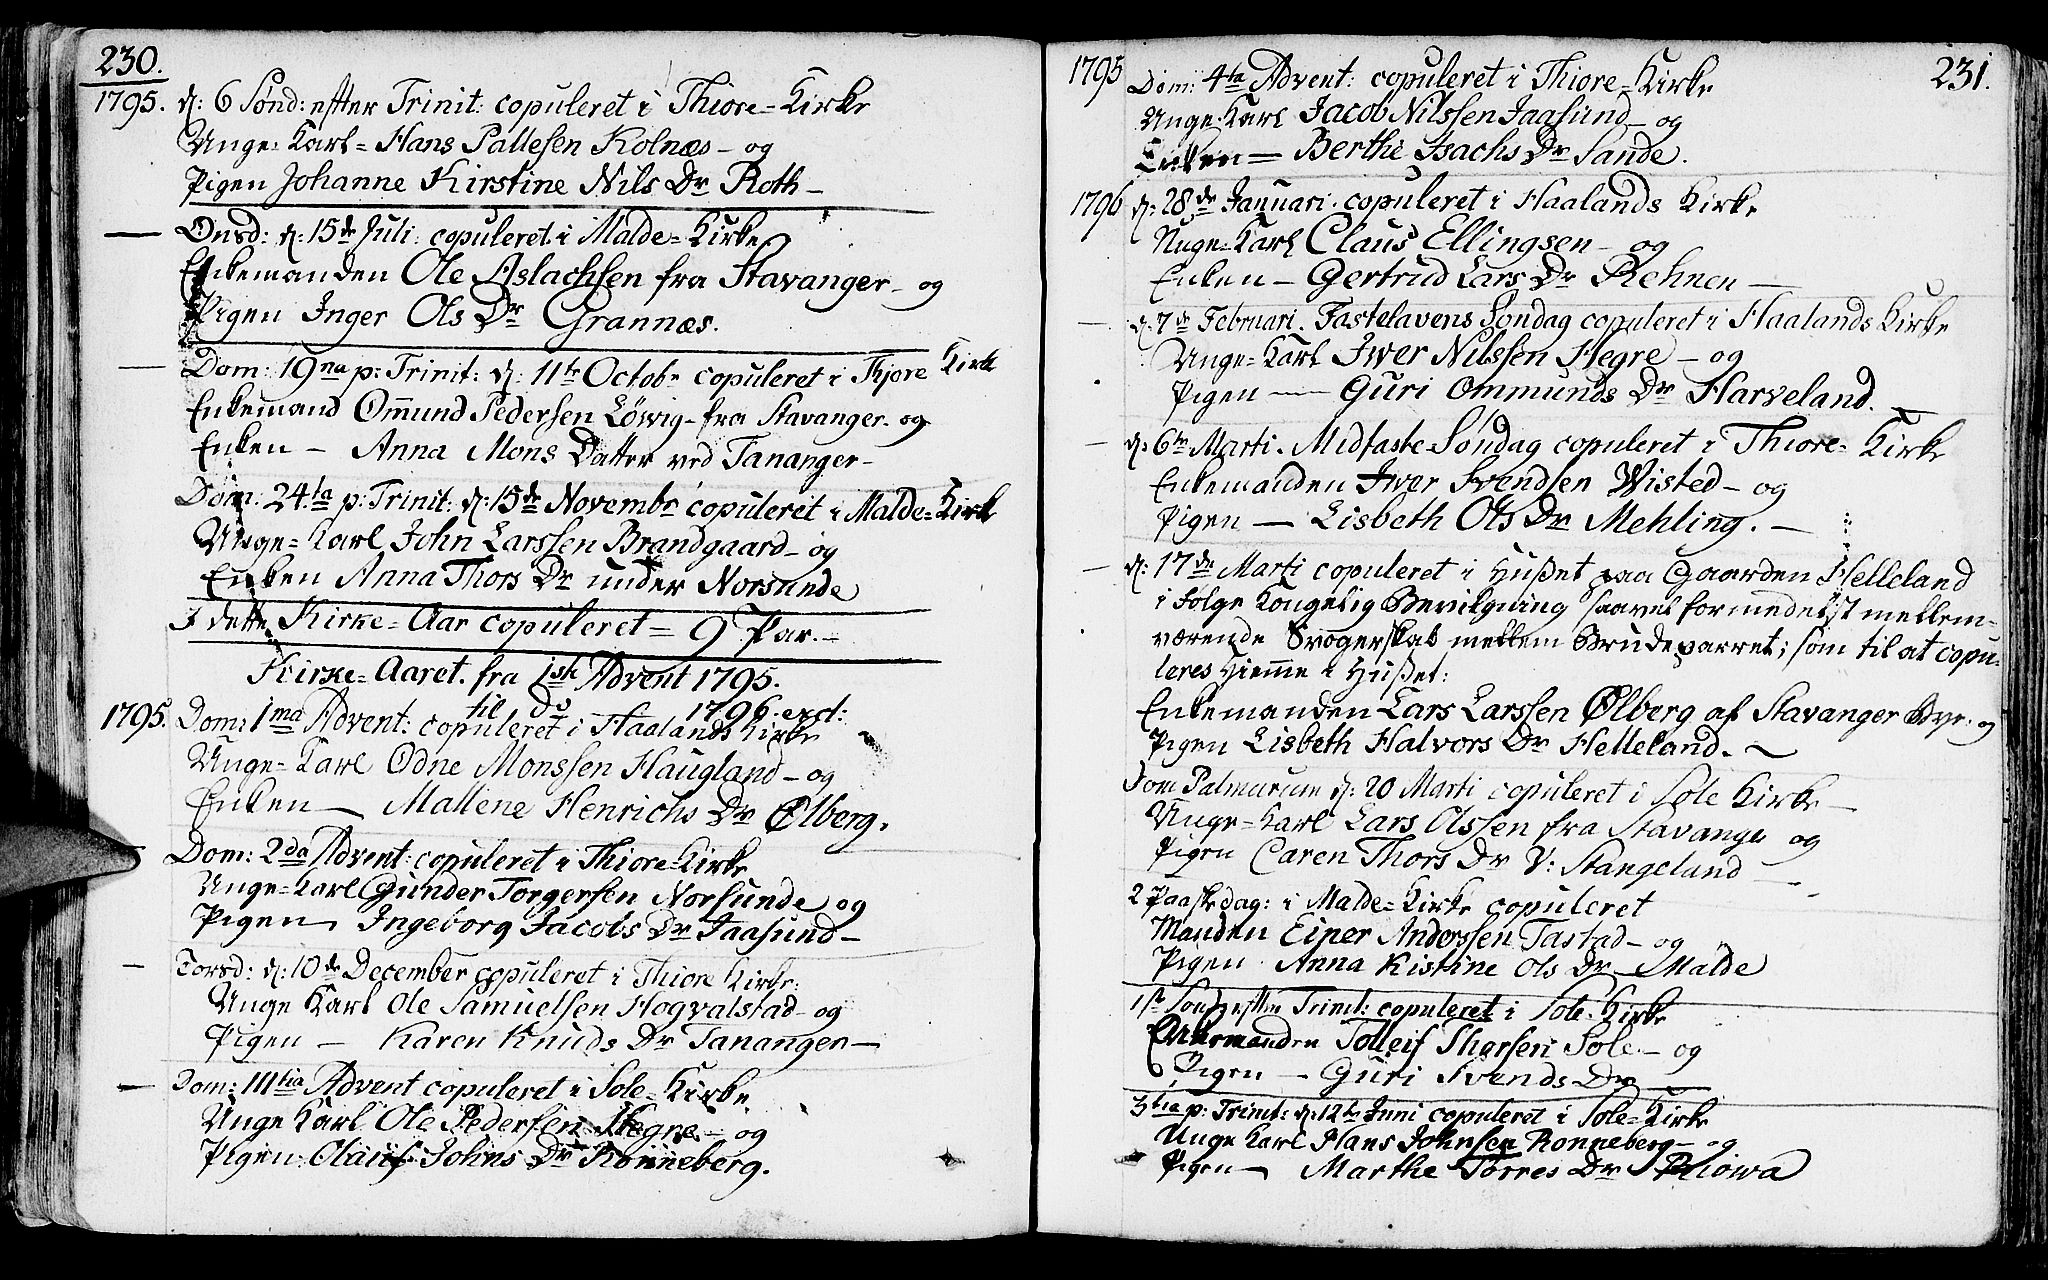 230.
1795. d: 6 Sønd: efter Trinit: copuleret i Thiore=Kirke
Unge=Karl= Hans Pallesen Kolnæs – og
Pigen Johanne Kirstine Nils Dr Roth –
— Onsd: d: 15de Juli copuleret i Malde=Kirke
Enkemanden Ole Aslachsen fra Stavanger – og
Pigen Inger Ols Dr Grannæs.
— Dom: 19na p: Trinit: d: 11te Octobr copuleret i Thjore Kirke
Enkemand Omund Pedersen Löwig – fra Stavanger – og
Enken – Anna Mons Datter ved Tananger –
Dom: 24ta p: Trinit: d: 15de Novembr copuleret i Malde=Kirke
Unge=Karl John Larssen Brandgaard – og
Enken Anna Thors Dr under Norsunde
I dette Kirke=Aar copuleret = 9 Par. –
Kirke=Aaret fra 1ste Advent 1795.
til do 1796. excl:
1795. Dom: 1ma Advent: copuleret i Haalands Kirke
Unge=Karl Odne Monssen Haugland – og
Enken — Mallene Henrichs Dr Ølberg.
— Dom: 2da Advent: copuleret i Thiore=Kirke
Unge=Karl Gunder Torgersen Norsunde og
Pigen, Ingeborg Jacobs Dr Jaasund –
— Torsd: d: 10de December copuleret i Thiore Kirke:
Unge Karl Ole Samuelsen Hogvalstad – og
Pigen – Karen Knuds Dr Tananger —
— Dom: IIItia Advent copuleret i Sole=Kirke
Unge Karl Ole Pedersen Hegre – og
Pigen: Oluf Johns Dr Rönneberg.
231.
1795 Dom: 4ta Advent: copuleret i Thiore=Kirke
Unge=Karl Jacob Nilssen Jaasund – og
Enken = Berthe Isachs Dr Sande.
1796 d: 28de Januari copuleret i Haalands Kirke
Unge=Karl Claus Ellingsen – og
Enken – Gertrud Lars Dr Rehnen —
— d: 7de Februari. Fastelavens Søndag copuleret i Haalands Kirke
Unge=Karl Iwer Nilssen Hegre – og
Pigen — Guri Ommunds Dr Harveland.
— d: 6te Marti. Midfaste Søndag copuleret i Thiore=Kirke
Enkemanden Iwer Svendsen Wisted – og
Pigen — Lisbeth Ols Dr Mehling. —
— d: 17de Marti copuleret i Hußet paa Gaarden Helleland
i Folge Kongelig Bevilgning saavel formedelst mellem=
værende Svogerskab mellem Brudeparret; som til at copu=
leres Hiemme i Hußet:
Enkemanden Lars Larssen Ølberg af Stavanger Bye – og
Pigen Lisbeth Halvors Dr Helleland. ~
Dom Palmarum d: 20 Marti copuleret i Sole Kirke –
Unge=Karl Lars Olssen fra Stavange og
Pigen Caren Thors Dr V: Stangeland —
2 Paaskedag: i Malde=Kirke copuleret
Manden Einer Anderssen Tastad – og
Pigen Anna Kistine Ols Dr Malde
1ste Sønd: efter Trinit: copuleret i Sole Kirke
Enkemanden Tolleif Thorsen Sole – og
Pigen – Guri Svends Dr
3tia p: Trinit: d: 12te Juni copuleret i Sole=Kirke
Unge Karl Hans Johnsen Ronneberg – og
Pigen – Marthe Torres Dr